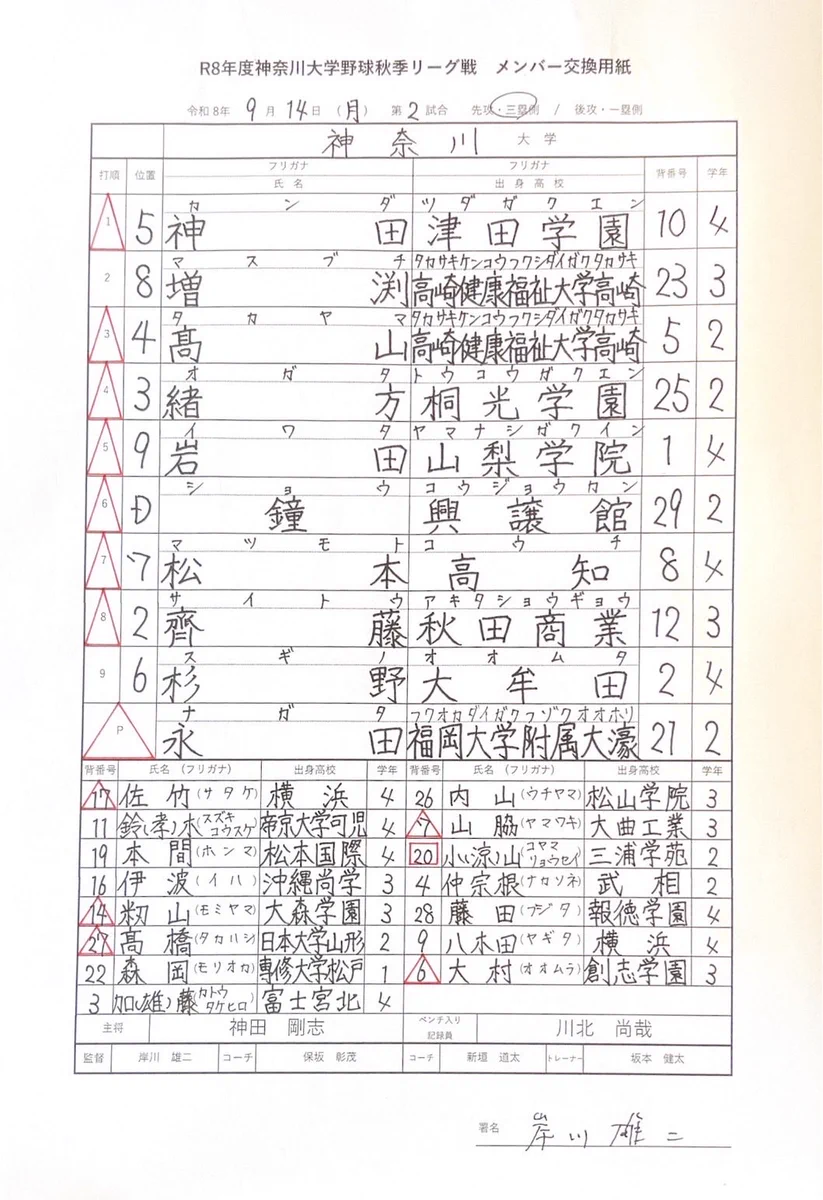 R8年度神奈川大学野球秋季リーグ戦　メンバー交換用紙
令和8年 9月 14日 (月) 第2試合 先攻・三塁側 / 後攻・一塁側
神奈川 大学
打順 位置 フリガナ 氏名 フリガナ 出身高校 背番号 学年
カンダ ツダガクエン
1 5 神田 津田学園 10 4
マスブチ タカサキケンコウフクシダイガクタカサキ
2 8 増渕 高崎健康福祉大学高崎 23 3
タカヤマ タカサキケンコウフクシダイガクタカサキ
3 4 髙山 高崎健康福祉大学高崎 5 2
オガタ トウコウガクエン
4 3 緒方 桐光学園 25 2
イワタ ヤマナシガクイン
5 9 岩田 山梨学院 1 4
ショウ コウジョウカン
6 D 鐘 興譲館 29 2
マツモト コウチ
7 7 松本 高知 8 4
サイトウ アキタショウギョウ
8 2 齊藤 秋田商業 12 3
スギノ オオムタ
9 6 杉野 大牟田 2 4
ナガタ フクオカダイガクフゾクオオホリ
P 永田 福岡大学附属大濠 21 2
背番号 氏名(フリガナ) 出身高校 学年 背番号 氏名(フリガナ) 出身高校 学年
17 佐竹(サタケ) 横浜 4 26 内山(ウチヤマ) 松山学院 3
11 鈴(孝)木(スズキコウスケ) 帝京大学可児 4 7 山脇(ヤマワキ) 大曲工業 3
19 本間(ホンマ) 松本国際 4 20 小(涼)山(コヤマリョウセイ) 三浦学苑 2
16 伊波(イハ) 沖縄尚学 3 4 仲宗根(ナカソネ) 武相 2
14 籾山(モミヤマ) 大森学園 3 28 藤田(フジタ) 報徳学園 4
27 髙橋(タカハシ) 日本大学山形 2 9 八木田(ヤギタ) 横浜 4
22 森岡(モリオカ) 専修大学松戸 1 6 大村(オオムラ) 創志学園 3
3 加(雄)藤(カトウタケヒロ) 富士宮北 4
主将 神田 剛志 ベンチ入り記録員 川北 尚哉
監督 岸川 雄二 コーチ 保坂 彰茂 コーチ 新垣 道太 トレーナー 坂本 健太
署名 岸川 雄二